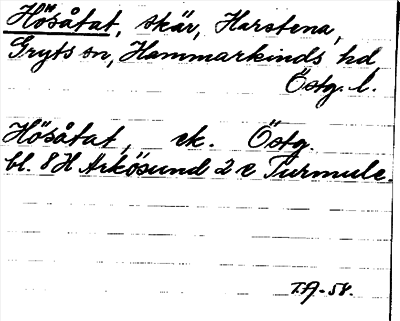 Hösåtat, skär, Harstena,
Gryts sn, Hammarkinds hd
Östg. l.
Hösåtat, ek. Östg.
bl. 8H Arkösund 2 e Turmule.
T.A-58.